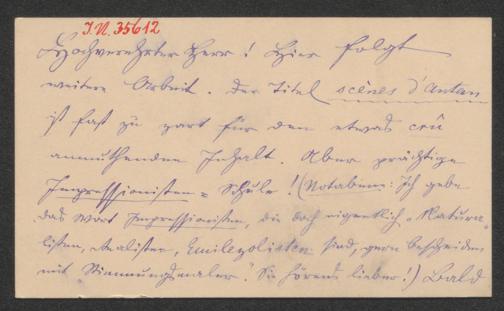 I.N. 35612
Hochverehrter Herr! Hier folgt
weitere Arbeit. Der Titel scènes d'Antan
ist fast zu zart für den etwas crû
anmuthenden Inhalt. Aber prächtige
Impressionisten-Schule! (Notabene: Ich gebe
das Wort Impressionisten, die doch eigentlich "Natura-
listen, Realisten, Emilezolisten sind, gern bescheiden
mit "Stimmungsmaler". Sie hörens lieber!) Bald